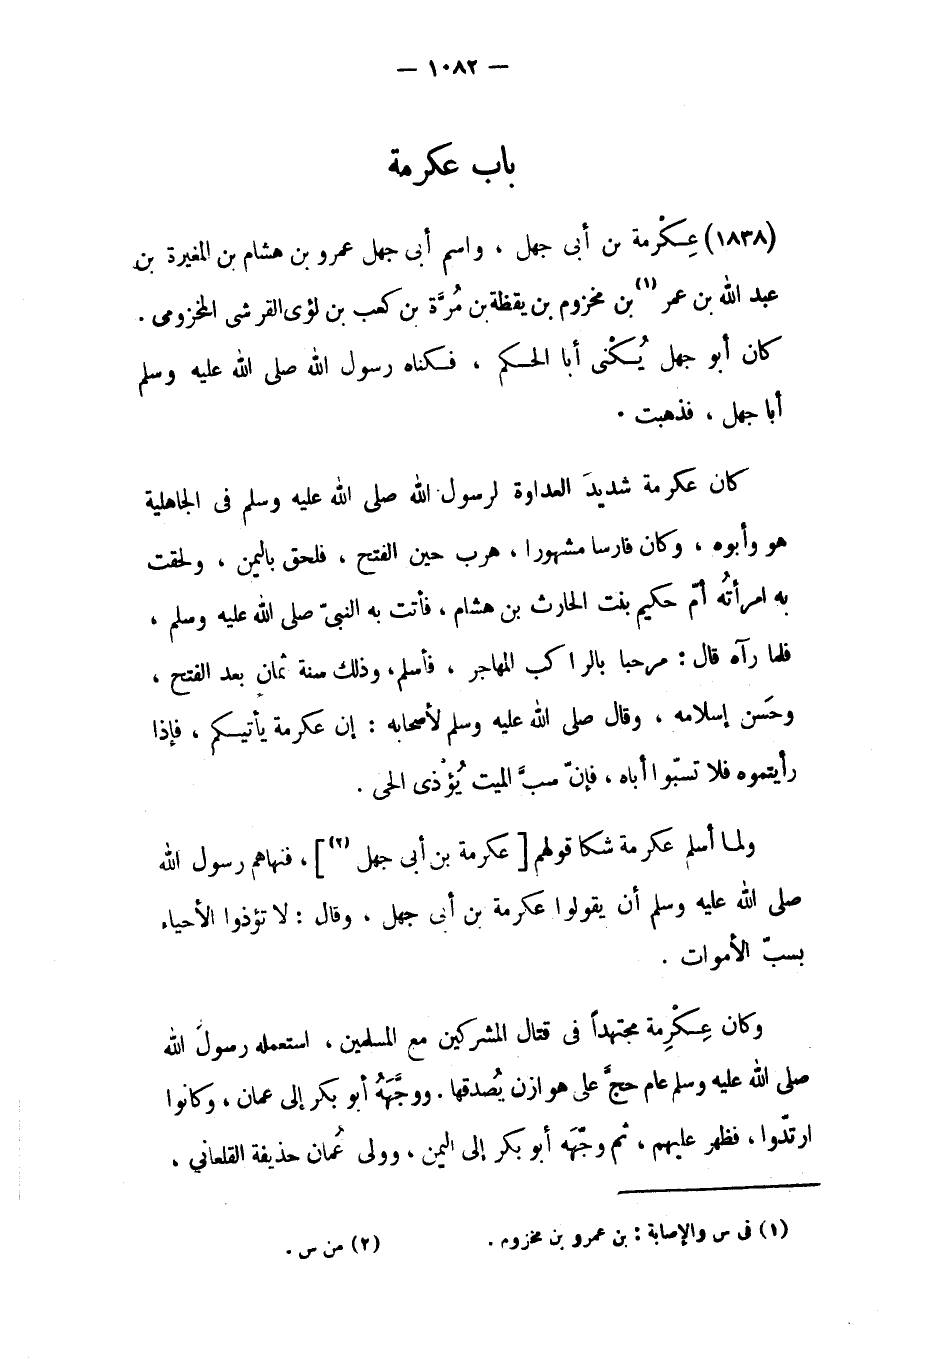 — ١٠٨٢ —
باب عكرمة
(١٨٣٨) عِكْرمة بن أبى جهل ، واسم أبى جهل عمرو بن هشام بن المغيرة بن
عبد الله بن عمر (١) بن مخزوم بن يقظة بن مُرَّة بن كعب بن لؤى القرشى المخزومى .
كان أبو جهل يُكْنى أبا الحكم ، فكناه رسول الله صلى الله عليه وسلم
أبا جهل ، فذهبت .
كان عكرمة شديدَ العداوة لرسول الله صلى الله عليه وسلم فى الجاهلية
هو وأبوه ، وكان فارسا مشهورا ، هرب حين الفتح ، فلحق باليمن ، ولحقت
به امرأتُه أمّ حكيم بنت الحارث بن هشام ، فأتت به النبىّ صلى الله عليه وسلم ،
فلما رآه قال : مرحبا بالراكب المهاجر ، فأسلم، وذلك سنة ثمان بعد الفتح ،
وحَسن إسلامه ، وقال صلى الله عليه وسلم لأصحابه : إن عكرمة يأتيكم ، فإذا
رأيتموه فلا تسبّوا أباه ، فإنّ سبَّ الميت يُؤْذى الحى .
ولما أسلم عكرمة شكا قولهم [ عكرمة بن أبى جهل (٢) ] ، فنهاهم رسول الله
صلى الله عليه وسلم أن يقولوا عكرمة بن أبى جهل ، وقال : لا تؤذوا الأحياء
بسبّ الأموات .
وكان عِكْرِمة مجتهداً فى قتال المشركين مع المسلمين ، استعمله رسولَ الله
صلى الله عليه وسلم عام حجَّ على هوازن يُصدقها . ووجَّهَهُ أبو بكر إلى عمان ، وكانوا
ارتدّوا ، فظهر عليهم ، ثم وجّهَه أبو بكر إلى اليمن ، وولى عُمان حذيفة القلعاني ،
(١) فى س والإصابة : بن عمرو بن مخزوم . (٢) من س .